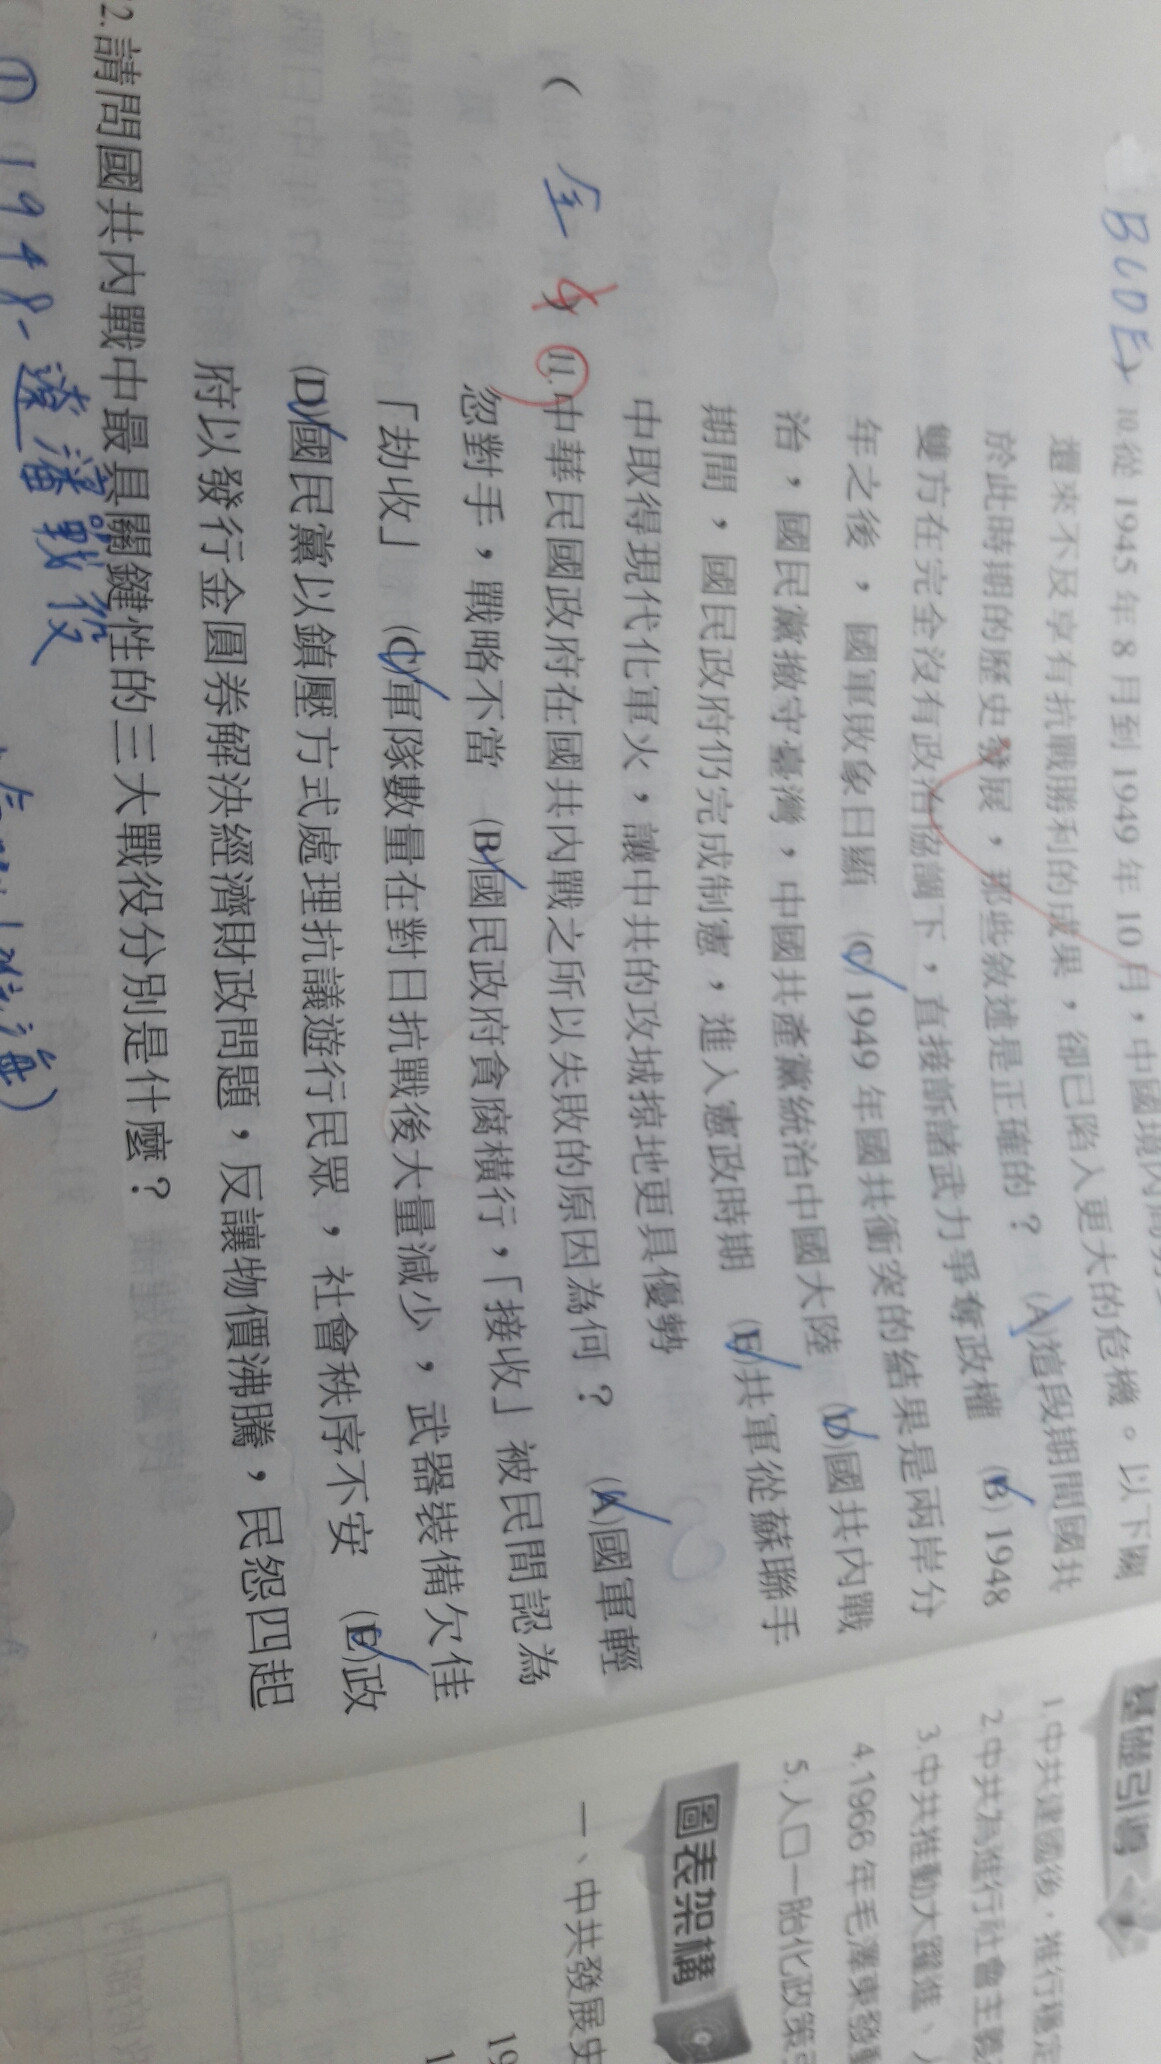 BCDE 10.從 1945 年 8 月到 1949 年 10 月，中國境內
還來不及享有抗戰勝利的成果，卻已陷入更大的危機。以下關
於此時期的歷史發展，那些敘述是正確的？ (A)這段期間國共
雙方在完全沒有政治協調下，直接訴諸武力爭奪政權 (B) 1948
年之後，國軍敗象日顯 (C) 1949 年國共衝突的結果是兩岸分
治，國民黨撤守臺灣，中國共產黨統治中國大陸 (D)國共內戰
期間，國民政府仍完成制憲，進入憲政時期 (E)共軍從蘇聯手
中取得現代化軍火，讓中共的攻城掠地更具優勢
( 全 ) 11.中華民國政府在國共內戰之所以失敗的原因為何？ (A)國軍輕
忽對手，戰略不當 (B)國民政府貪腐橫行，「接收」被民間認為
「劫收」 (C)軍隊數量在對日抗戰後大量減少，武器裝備欠佳
(D)國民黨以鎮壓方式處理抗議遊行民眾，社會秩序不安 (E)政
府以發行金圓券解決經濟財政問題，反讓物價沸騰，民怨四起
2.請問國共內戰中最具關鍵性的三大戰役分別是什麼？
① 1948-遼瀋戰役
基礎引導
1.中共建國後，推行穩定
2.中共為進行社會主義
3.中共推動大躍進、
4.1966 年毛澤東發動
5.人口一胎化政策
圖表架構
一、中共發展史
19
1